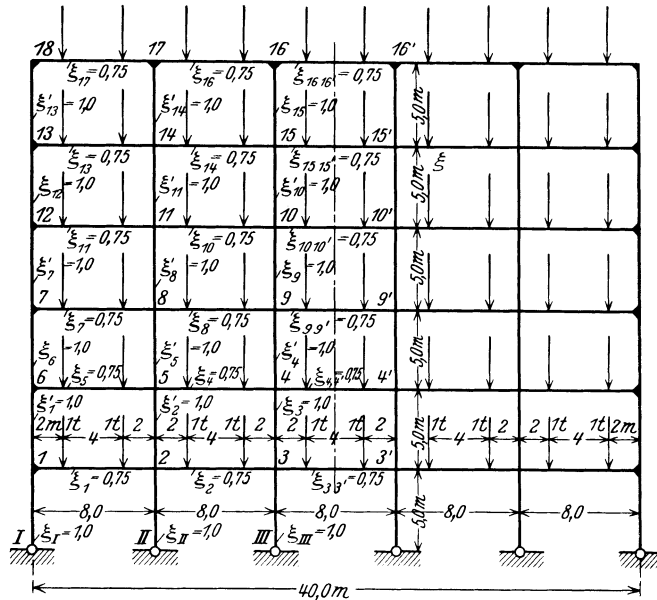 18 17 16 16'
ξ17 = 0,75 ξ16 = 0,75 ξ16 16' = 0,75
ξ'13 = 1,0 ξ'14 = 1,0 ξ15 = 1,0 5,0m
13 14 15 15'
ξ13 = 0,75 ξ14 = 0,75 ξ15 15' = 0,75 ξ
ξ12 = 1,0 ξ'11 = 1,0 ξ'10 = 1,0 5,0m
12 11 10 10'
ξ11 = 0,75 ξ10 = 0,75 ξ10 10' = 0,75
ξ'7 = 1,0 ξ'8 = 1,0 ξ9 = 1,0 5,0m
7 8 9 9'
ξ7 = 0,75 ξ8 = 0,75 ξ9 9' = 0,75
ξ6 = 1,0 ξ'5 = 1,0 ξ'4 = 1,0 5,0m
6 ξ5 = 0,75 5 ξ4 = 0,75 4 ξ4 4' = 0,75 4'
ξ'1 = 1,0 ξ'2 = 1,0 ξ3 = 1,0 5,0m
2m 1t 1t 2 2 1t 1t 2 2 1t 1t 2 1t 1t 2 2 1t 1t 2m
4 4 4 4 4
1 2 3 3'
ξ1 = 0,75 ξ2 = 0,75 ξ3 3' = 0,75
8,0 8,0 8,0 5,0m 8,0 8,0
I ξI = 1,0 II ξII = 1,0 III ξIII = 1,0
40,0m